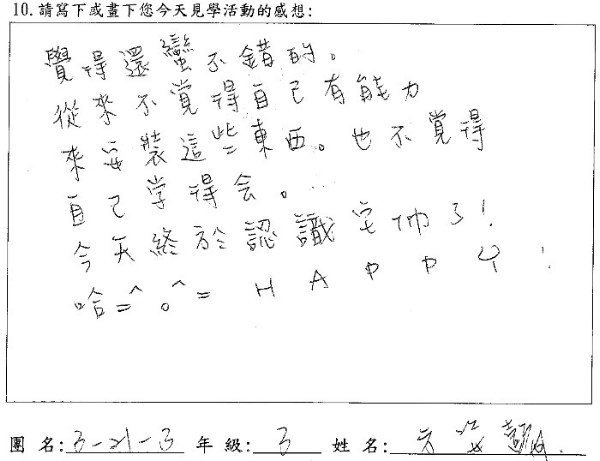 10.請寫下或畫下您今天見學活動的感想:
覺得還蠻不錯的。
從來不覚得自己有能力
來安裝這些東西。也不覚得
自己学得会。...
今天終於認識它們了!
哈=^。^= HAPPY!
團 名:3-21-3 年 級:3 姓 名: